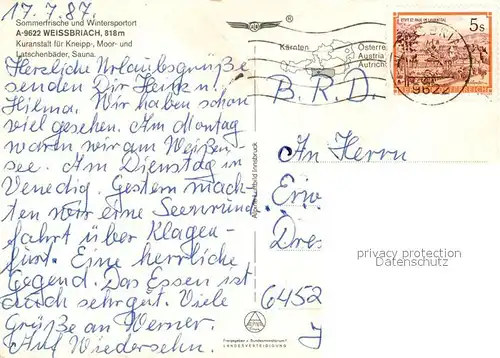 17.7.87.
Sommerfrische und Wintersportort
A-9622 WEISSBRIACH, 818m
Kuranstalt für Kneipp-, Moor- und
Latschenbäder, Sauna.
Herzliche Urlaubsgrüße
senden Dir Henk u.
Hilma. Wir haben schon
viel gesehen. Am Montag
waren wir am Weißen-
see. Am Dienstag in
Venedig. Gestern mach-
ten wir eine Seenrund
fahrt über Klagen-
furt. Eine herrliche
Gegend. Das Essen ist
auch sehr gut. Viele
Grüße an Werner.
Auf Wiedersehn.
Alpine Luftbild Innsbruck
Freigegeben v. Bundesministerium f.
LANDESVERTEIDIGUNG
Kärnten
Österre
Austria
Autrich
STIFT ST. PAUL IM LAVANTTAL
5s
9622
B.R.D.
An Herrn
Erw
Dres
6452
privacy protection
Datenschutz